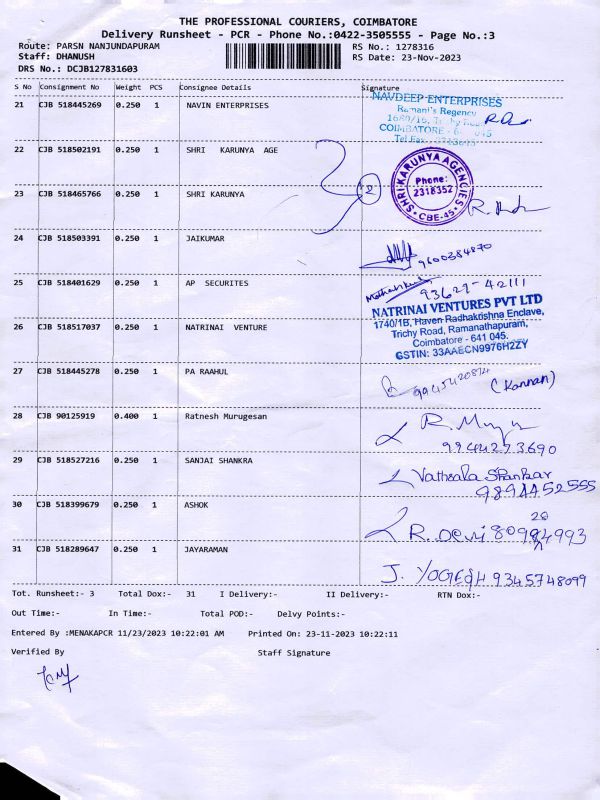 THE PROFESSIONAL COURIERS, COIMBATORE
Delivery Runsheet - PCR - Phone No.:0422-3505555 - Page No.:3
Route: PARSN NANJUNDAPURAM
RS No.: 1278316
Staff: DHANUSH
RS Date: 23-Nov-2023
DRS No.: DCJB127831603
S No Consignment No Weight PCS Consignee Details Signature
21 CJB 518445269 0.250 1 NAVIN ENTERPRISES
NAVDEEP ENTERPRISES
Ramani's Regency
COIMBATORE - 641 045
22 CJB 518502191 0.250 1 SHRI KARUNYA AGE
23 CJB 518465766 0.250 1 SHRI KARUNYA
2
SHRI KARUNYA AGENCIES
Phone:
2318352
CBE-45
24 CJB 518503391 0.250 1 JAIKUMAR
9600384870
25 CJB 518401629 0.250 1 AP SECURITES
93629-42111
26 CJB 518517037 0.250 1 NATRINAI VENTURE
NATRINAI VENTURES PVT LTD
1740/1B, Haven Radhakrishna Enclave,
Trichy Road, Ramanathapuram,
Coimbatore - 641 045.
GSTIN: 33AAECN9976H2ZY
27 CJB 518445278 0.250 1 PA RAAHUL
9945420874 (Kannan)
28 CJB 90125919 0.400 1 Ratnesh Murugesan
9944273690
29 CJB 518527216 0.250 1 SANJAI SHANKRA
Vathsala Shankar
9894452555
30 CJB 518399679 0.250 1 ASHOK
R. Devi
31 CJB 518289647 0.250 1 JAYARAMAN
J. YOGESH 9345748099
Tot. Runsheet:- 3 Total Dox:- 31 I Delivery:- II Delivery:- RTN Dox:-
Out Time:- In Time:- Total POD:- Delvy Points:-
Entered By :MENAKAPCR 11/23/2023 10:22:01 AM Printed On: 23-11-2023 10:22:11
Verified By Staff Signature